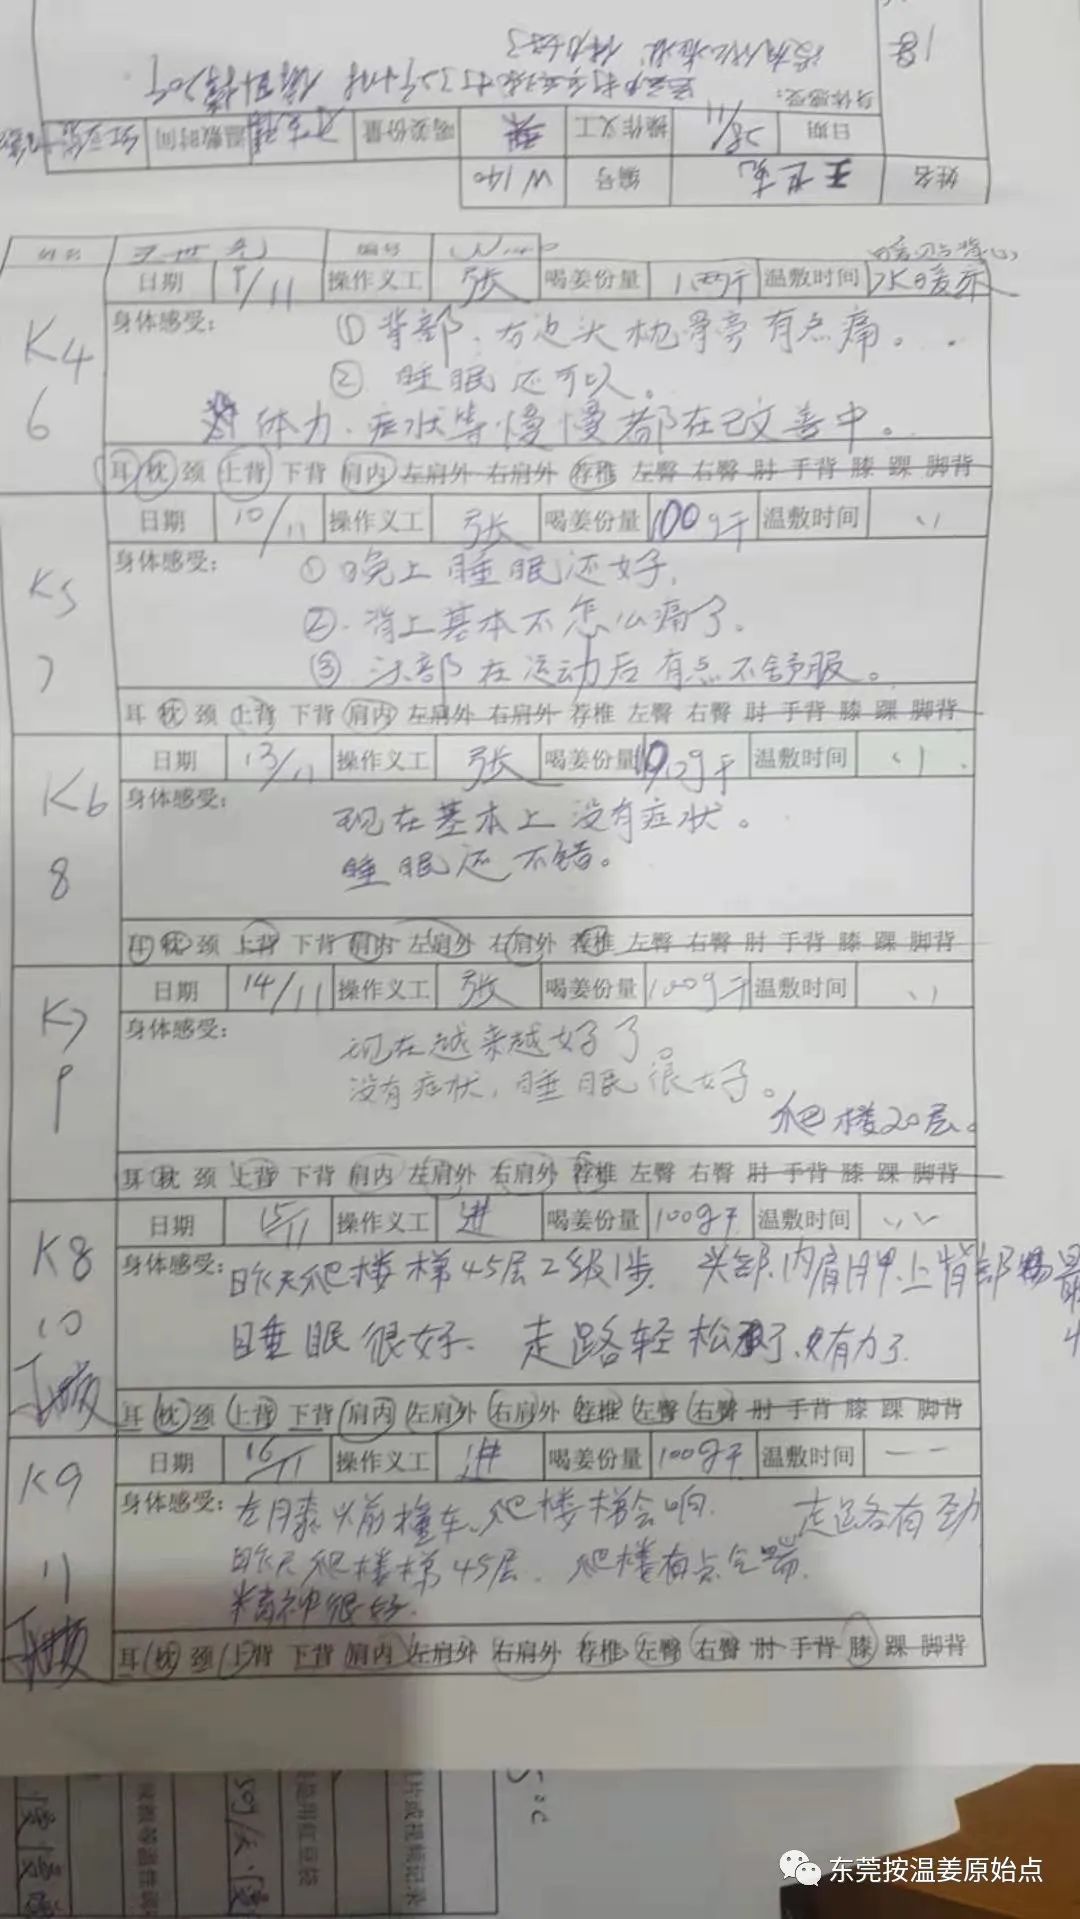 姓名 编号 W140
日期 28/11 操作义工 喝姜份量 温敷时间
身体感受：
18
姓名 王世 编号
日期 9/11 操作义工 张 喝姜份量 1两干 温敷时间 水暖床
K4
6
身体感受： ①背部、右边头枕骨旁有点痛。
②睡眠还可以。
体力、症状等慢慢都在改善中。
耳 枕 颈 上背 下背 肩内 左肩外 右肩外 荐椎 左臀 右臀 肘 手背 膝 踝 脚背
日期 10/11 操作义工 张 喝姜份量 100g干 温敷时间 〃
K5
7
身体感受： ①晚上睡眠还好，
②背上基本不怎么痛了。
③头部在运动后有点不舒服。
耳 枕 颈 上背 下背 肩内 左肩外 右肩外 荐椎 左臀 右臀 肘 手背 膝 踝 脚背
日期 13/11 操作义工 张 喝姜份量 温敷时间 〃
K6
8
身体感受： 现在基本上没有症状。
睡眠还不错。
耳 枕 颈 上背 下背 肩内 左肩外 右肩外 荐椎 左臀 右臀 肘 手背 膝 踝 脚背
日期 14/11 操作义工 张 喝姜份量 100g干 温敷时间 〃
K7
9
身体感受： 现在越来越好了。
没有症状，睡眠很好。
爬楼20层。
耳 枕 颈 上背 下背 肩内 左肩外 右肩外 荐椎 左臀 右臀 肘 手背 膝 踝 脚背
日期 15/11 操作义工 进 喝姜份量 100g干 温敷时间 〃
K8
10
身体感受： 昨天爬楼梯45层2级1步. 头部、内肩胛、上背部
睡眠很好. 走路轻松了、有力了
耳 枕 颈 上背 下背 肩内 左肩外 右肩外 荐椎 左臀 右臀 肘 手背 膝 踝 脚背
日期 16/11 操作义工 进 喝姜份量 100g干 温敷时间
K9
11
身体感受： 左膝以前撞车、爬楼梯会响. 走路有劲
昨天爬楼梯45层. 爬楼有点气喘.
精神很好.
耳 枕 颈 上背 下背 肩内 左肩外 右肩外 荐椎 左臀 右臀 肘 手背 膝 踝 脚背
50g/天
东莞按温姜原始点